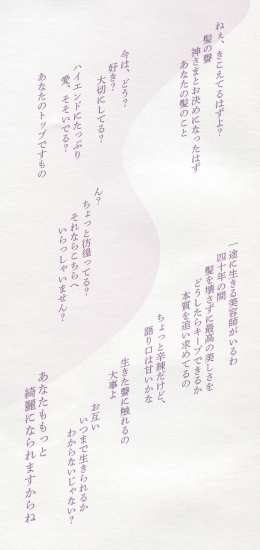 ねぇ、きこえてるはずよ?
髪の聲
神さまとお決めになったはず
あなたの髪のこと
今は、どう?
好き?
大切にしてる?
ハイエンドにたっぷり
愛、そそいでる?
あなたのトップですもの
ん?
ちょっと彷徨ってる?
それならこちらへ
いらっしゃいません?
一途に生きる美容師がいるわ
四十年の間
髪を壊さずに最高の美しさを
どうしたらキープできるか
本質を追い求めてるの
ちょっと辛辣だけど、
語り口は甘いかな
生きた聲に触れるの
大事よ
お互い
いつまで生きられるか
わからないじゃない?
あなたももっと
綺麗になられますからね